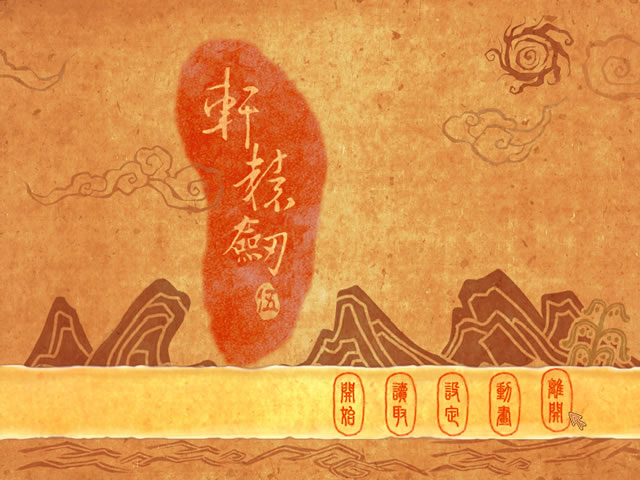 軒轅劍
伍
開始
讀取
設定
動畫
離開